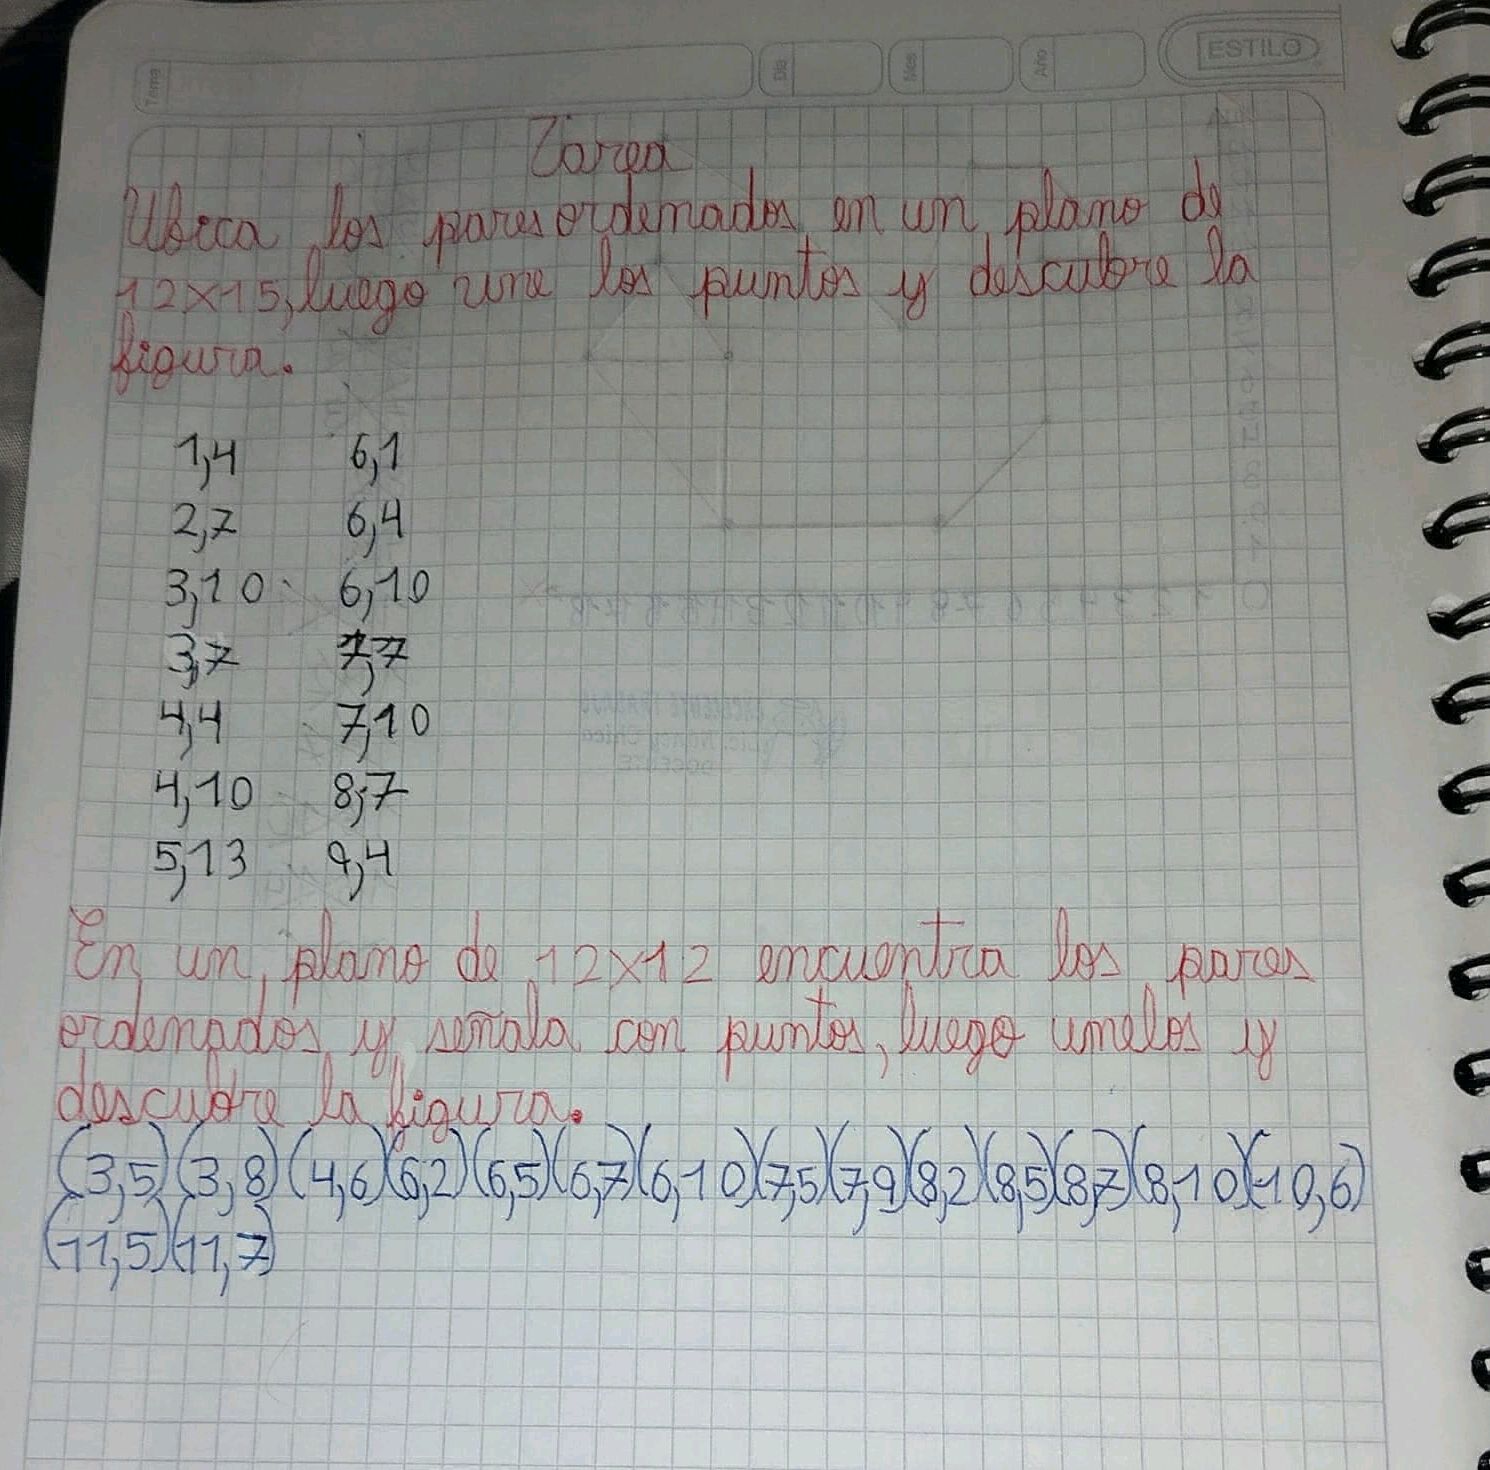 Tema
Día
Mes
Año
ESTILO
Tarea
Ubica los pares ordenados en un plano de
12x15, luego une los puntos y descubre la
figura.
1,4 6,1
2,7 6,4
3,10 6,10
3,7 7,7
4,4 7,10
4,10 8,7
5,13 9,4
En un plano de 12x12 encuentra los pares
ordenados y señala con puntos, luego unelos y
descubre la figura.
(3,5)(3,8)(4,6)(6,2)(6,5)(6,7)(6,10)(7,5)(7,9)(8,2)(8,5)(8,7)(8,10)(10,6)
(11,5)(11,7)